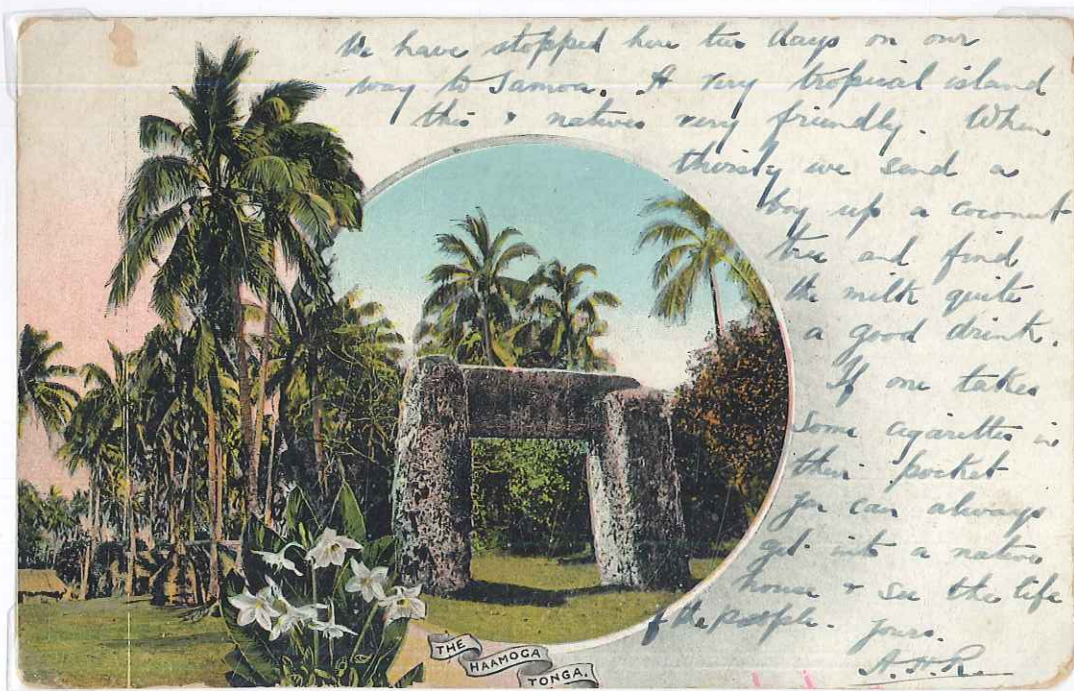 We have stopped here two days on our
way to Samoa. A very tropical island
this & natives very friendly. When
thirsty we send a
boy up a coconut
tree and find
the milk quite
a good drink.
If one takes
some cigarettes in
their pocket
you can always
get into a natives
house & see the life
of the people. Yours.
A.H.R.
THE
HAAMOGA
TONGA.